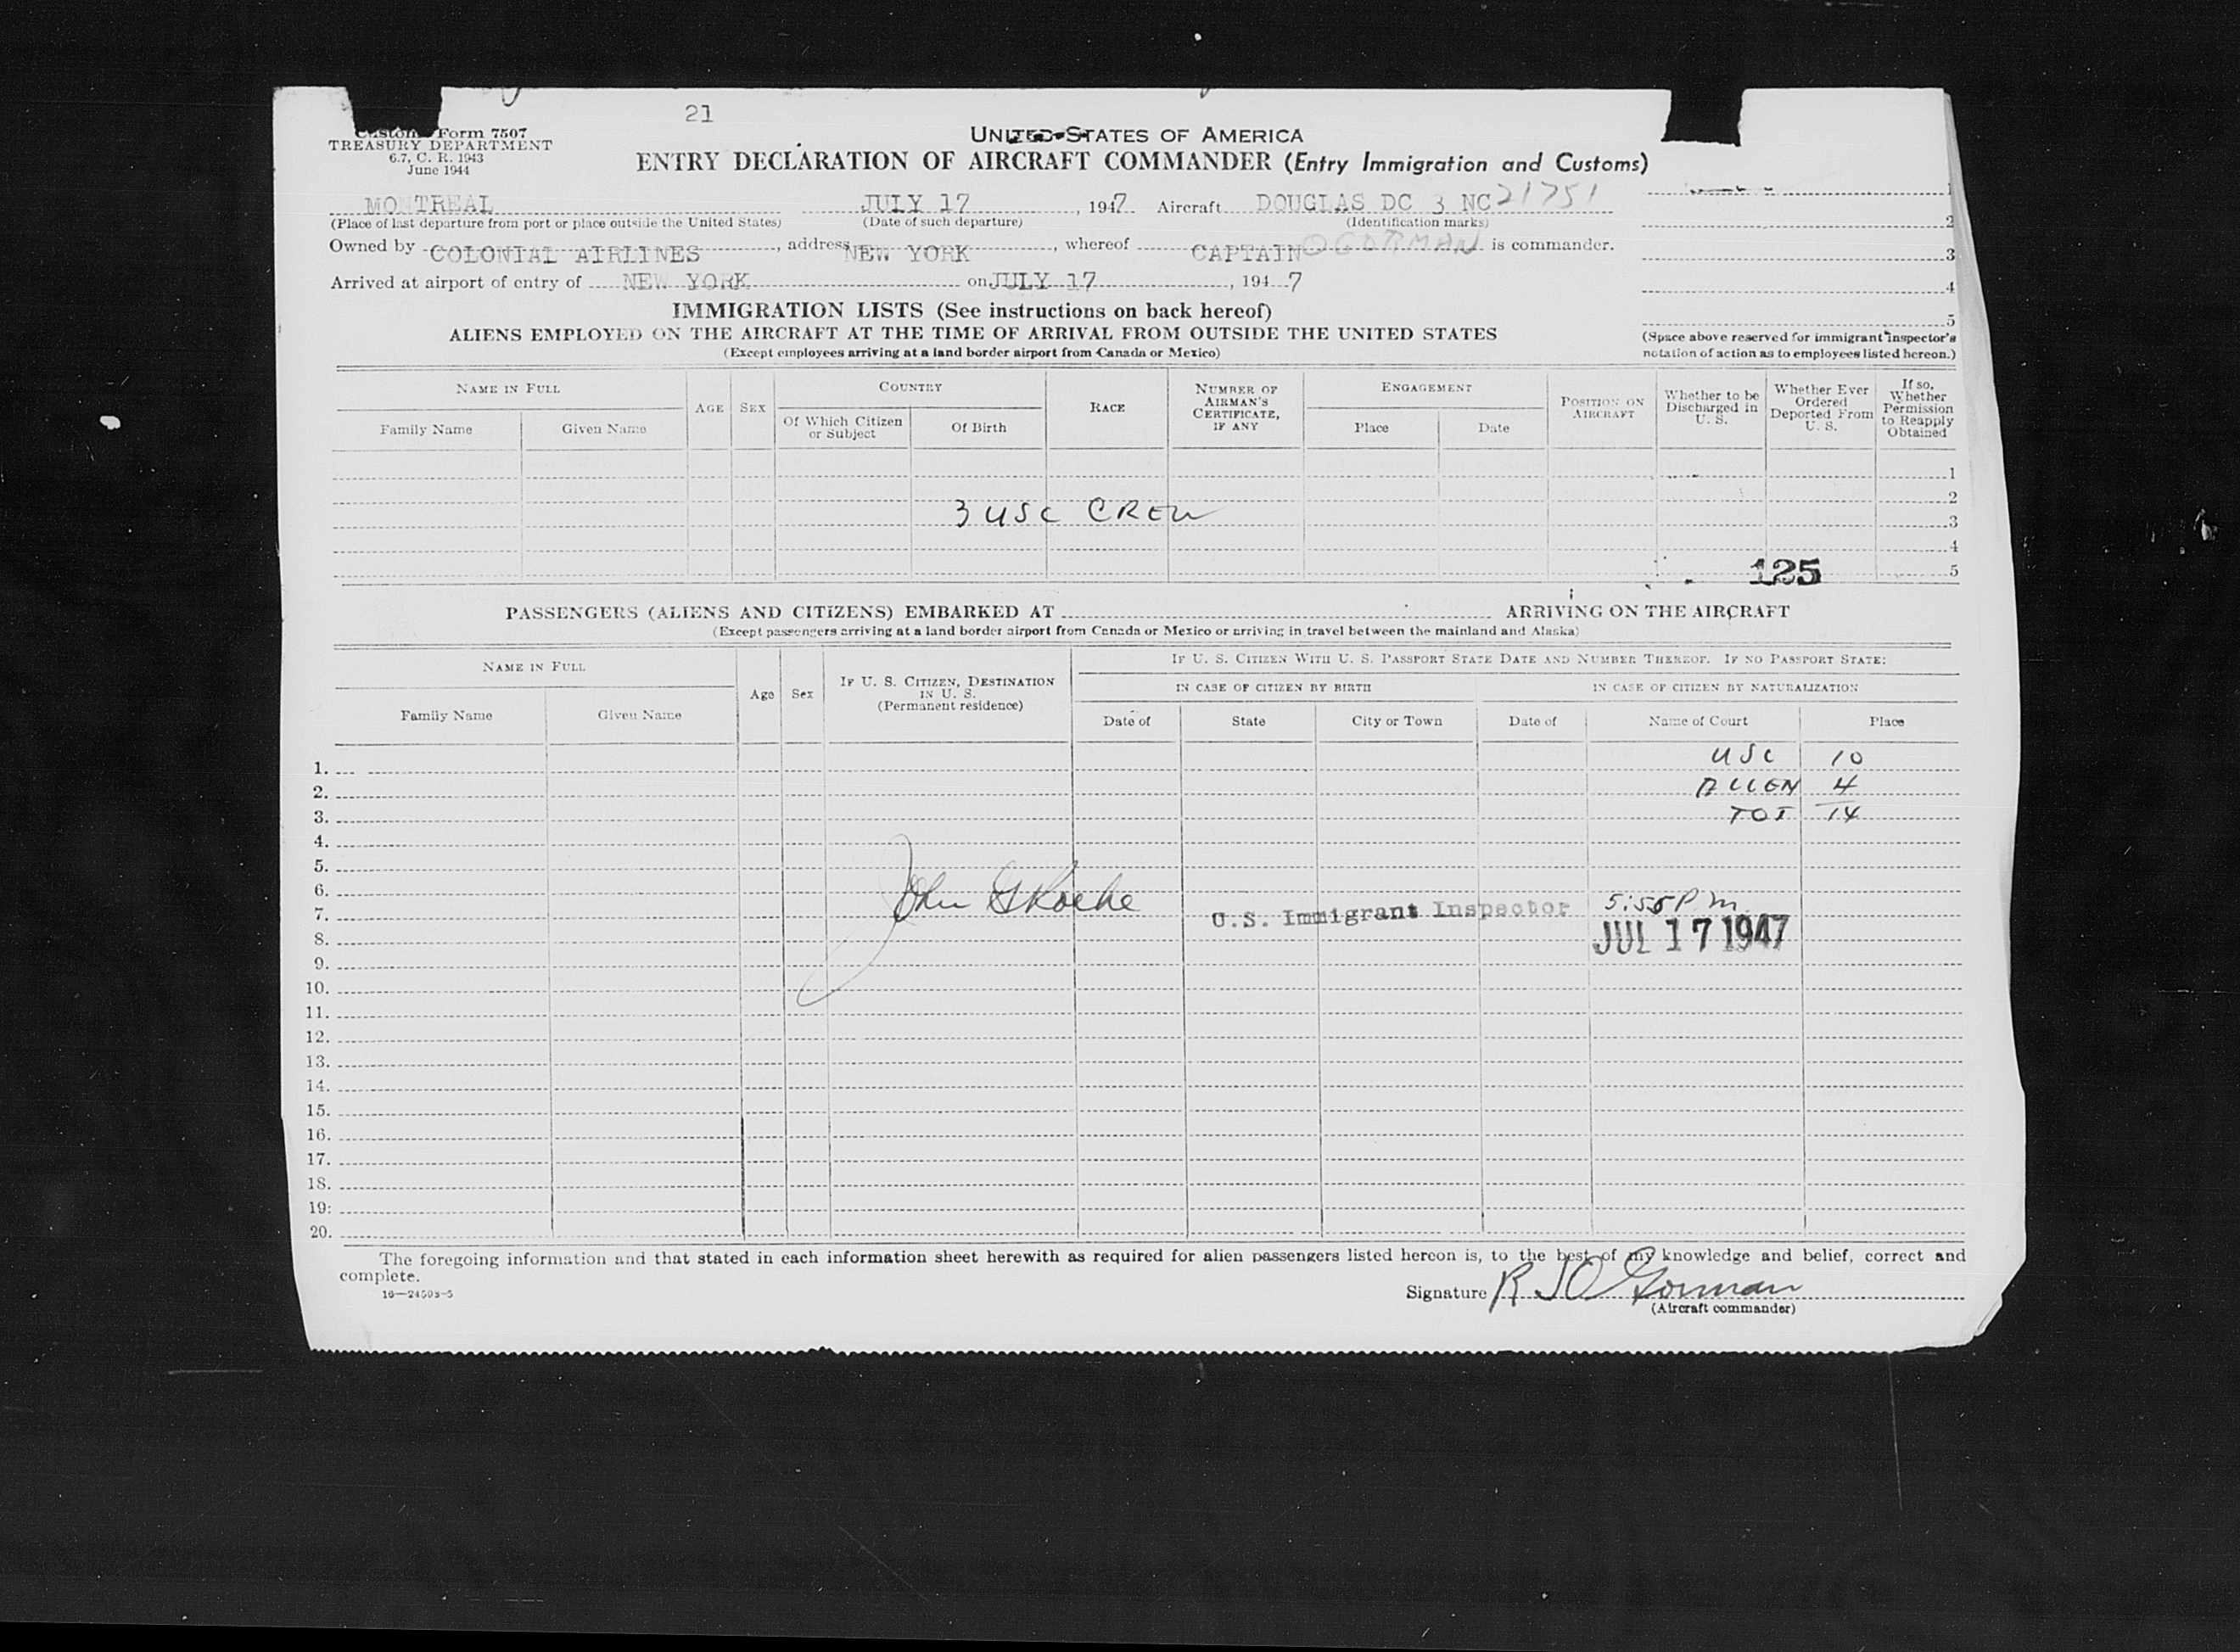 21
Customs Form 7507
TREASURY DEPARTMENT
6.7, C. R. 1943
June 1944
UNITED STATES OF AMERICA
ENTRY DECLARATION OF AIRCRAFT COMMANDER (Entry Immigration and Customs)
MONTREAL JULY 17, 1947 Aircraft DOUGLAS DC 3 NC 21751
(Place of last departure from port or place outside the United States) (Date of such departure) (Identification marks)
Owned by COLONIAL AIRLINES, address NEW YORK, whereof CAPTAIN OGORMAN is commander.
Arrived at airport of entry of NEW YORK on JULY 17, 1947
1
2
3
4
5
(Space above reserved for immigrant inspector's
notation of action as to employees listed hereon.)
IMMIGRATION LISTS (See instructions on back hereof)
ALIENS EMPLOYED ON THE AIRCRAFT AT THE TIME OF ARRIVAL FROM OUTSIDE THE UNITED STATES
(Except employees arriving at a land border airport from Canada or Mexico)
NAME IN FULL
Family Name Given Name
AGE SEX
COUNTRY
Of Which Citizen or Subject Of Birth
RACE
NUMBER OF AIRMAN'S CERTIFICATE, IF ANY
ENGAGEMENT
Place Date
POSITION ON AIRCRAFT
Whether to be Discharged in U. S.
Whether Ever Ordered Deported From U. S.
If so, Whether Permission to Reapply Obtained
1
2
3 USC CREW 3
4
125 5
PASSENGERS (ALIENS AND CITIZENS) EMBARKED AT ARRIVING ON THE AIRCRAFT
(Except passengers arriving at a land border airport from Canada or Mexico or arriving in travel between the mainland and Alaska)
NAME IN FULL
Family Name Given Name
Age Sex
IF U. S. CITIZEN, DESTINATION IN U. S.
(Permanent residence)
IF U. S. CITIZEN WITH U. S. PASSPORT STATE DATE AND NUMBER THEREOF. IF NO PASSPORT STATE:
IN CASE OF CITIZEN BY BIRTH IN CASE OF CITIZEN BY NATURALIZATION
Date of State City or Town Date of Name of Court Place
1. USC 10
2. ALIEN 4
3. TOT 14
4.
5.
6.
7. John G Roche U.S. Immigrant Inspector 5:55 Pm
8. JUL 17 1947
9.
10.
11.
12.
13.
14.
15.
16.
17.
18.
19.
20.
The foregoing information and that stated in each information sheet herewith as required for alien passengers listed hereon is, to the best of my knowledge and belief, correct and
complete.
16—24593-5
Signature R J O'Gorman
(Aircraft commander)